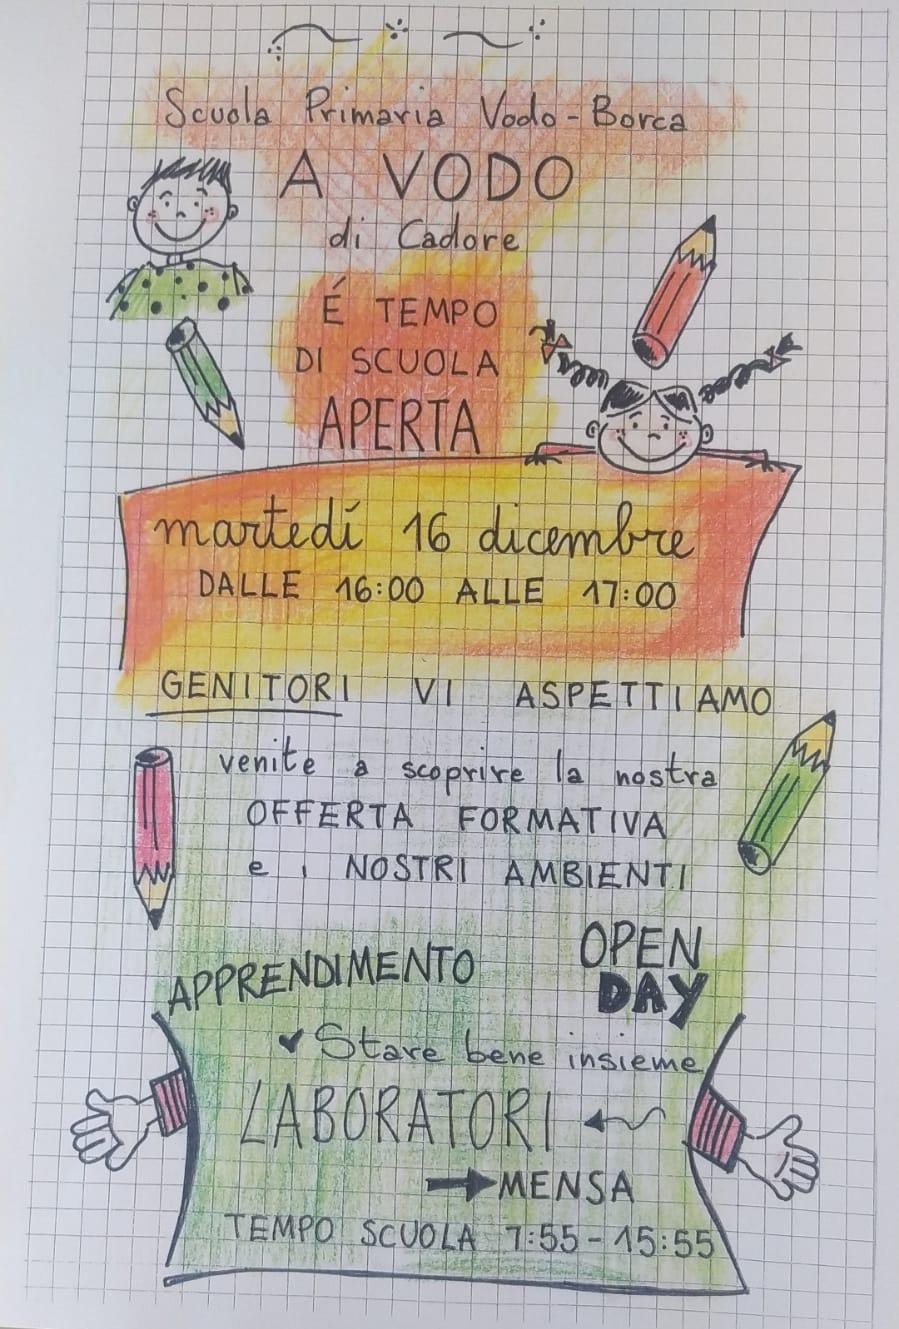 Scuola Primaria Vodo-Borca
A VODO
di Cadore
É TEMPO
DI SCUOLA
APERTA
martedí 16 dicembre
DALLE 16:00 ALLE 17:00
GENITORI VI ASPETTIAMO
venite a scoprire la nostra
OFFERTA FORMATIVA
e i NOSTRI AMBIENTI
APPRENDIMENTO
OPEN
DAY
✔ Stare bene insieme
LABORATORI
→ MENSA
TEMPO SCUOLA 7:55-15:55